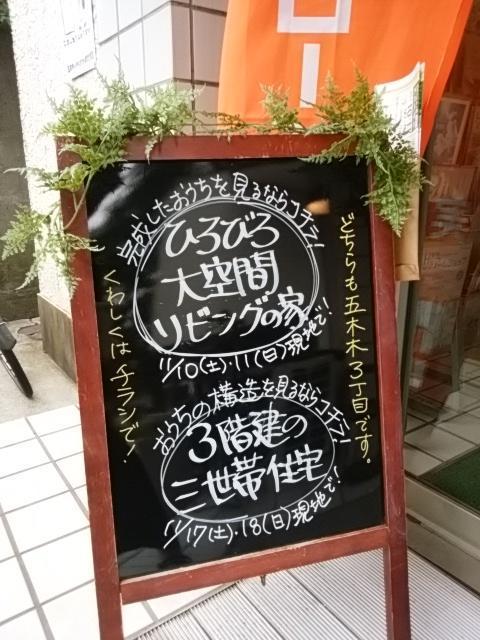 完成したおうちを見るならコチラ!
ひろびろ
大空間
リビングの家
11/10(土)・11(日)現地で!
おうちの構造を見るならコチラ!
3階建の
二世帯住宅
11/17(土)・18(日)現地で!
どちらも五本木3丁目です。
くわしくはチラシで!